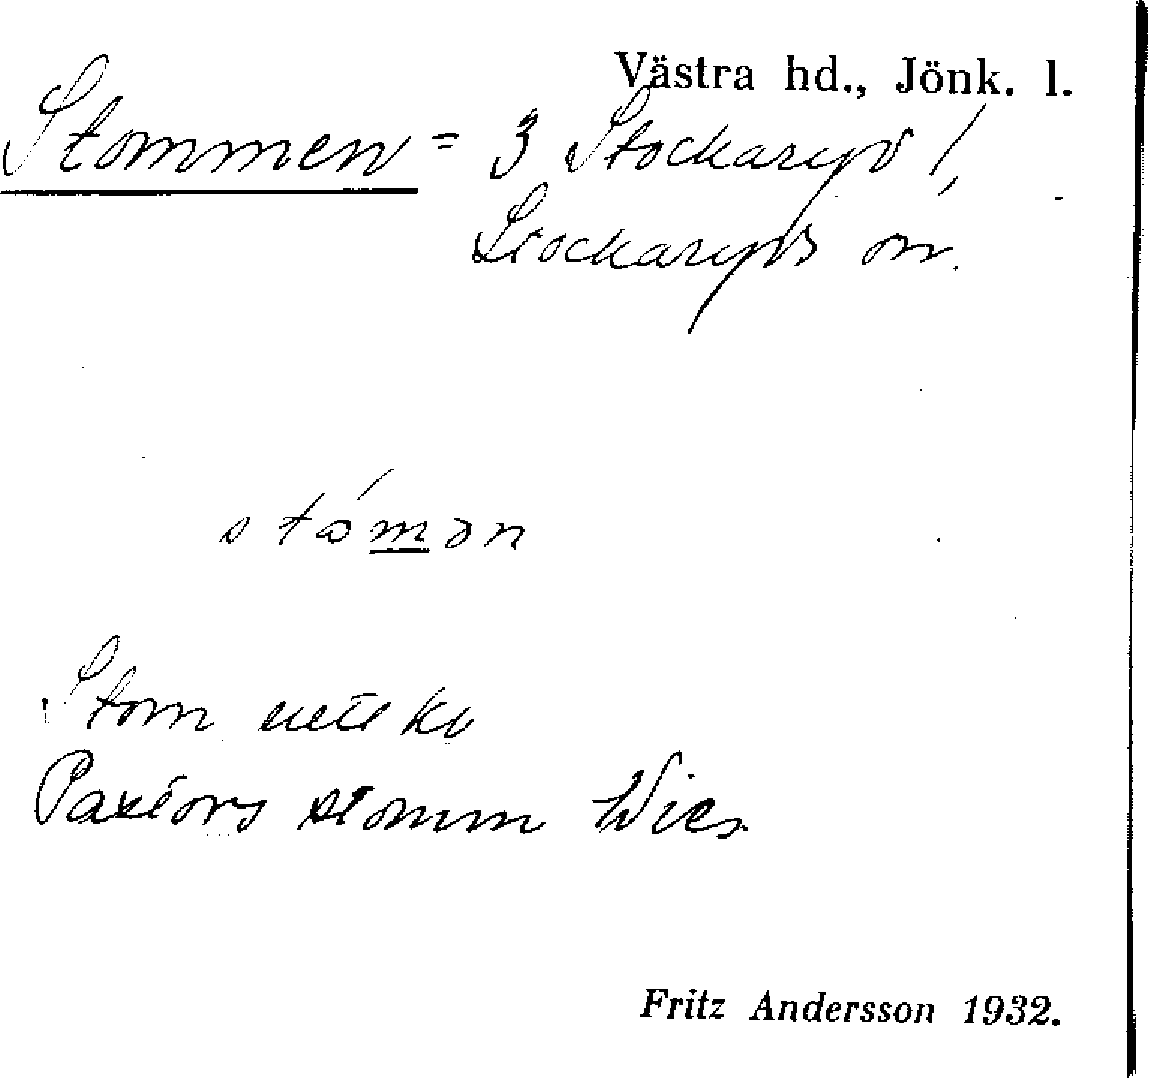 Västra hd., Jönk. l.
Stommen = 3 Stockaryd 1,
Stockaryds sn.
stómən
Stom
Pastors stomm Wies.
Fritz Andersson 1932.